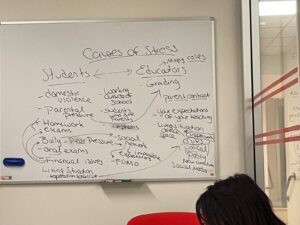 Causes of Stress
Students ←→ Educators
- Many roles
- Grading
- domestic violence
- Working outside of school
- Parental pressure
- students who are parents
- orphans
- Homework
- exams
- Bully - Peer Pressure
- oral exams
- Financial issues
- Living Situation
- social network
- FOMO
- parent contact
- High expectations of your teaching
- Living situation
Policy
Social media